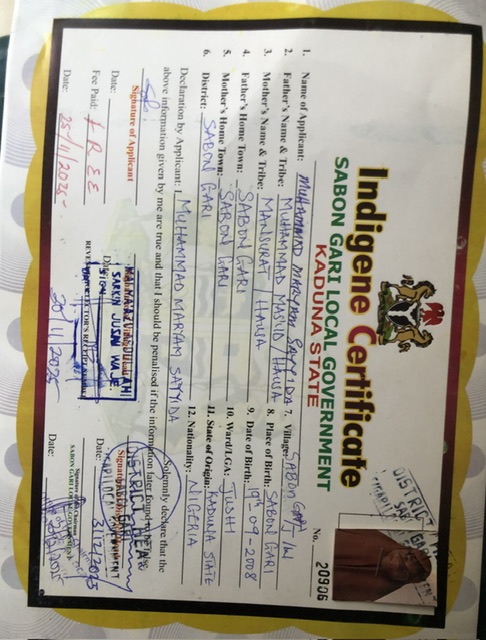 Indigene Certificate
SABON GARI LOCAL GOVERNMENT
KADUNA STATE
No. 20906
1. Name of Applicant: MUHAMMAD MARYAM SAYYIDA
2. Father's Name & Tribe: MUHAMMAD MASUD HAUSA
3. Mother's Name & Tribe: MANSURAT / HAUSA
4. Father's Home Town: SABON GARI
5. Mother's Home Town: SABON GARI
6. District: SABON GARI
7. Village: SABON GARI
8. Place of Birth: SABON GARI
9. Date of Birth: 19th 09-2008
10. Ward/LGA: JUSHI
11. State of Origin: KADUNA STATE
12. Nationality: NIGERIA
Declaration by Applicant: I MUHAMMAD MARYAM SAYYIDA Solemnly declare that the
above information given by me are true and that I should be penalised if the information later found
Signature of Applicant
Date:
Fee Paid: FREE
Date: 25/11/2025
SARKIN JUSHI WAJE
Date:
DISTRICT HEAD
SABON GARI
Date: 3/12/2025
Date:
DISTRICT